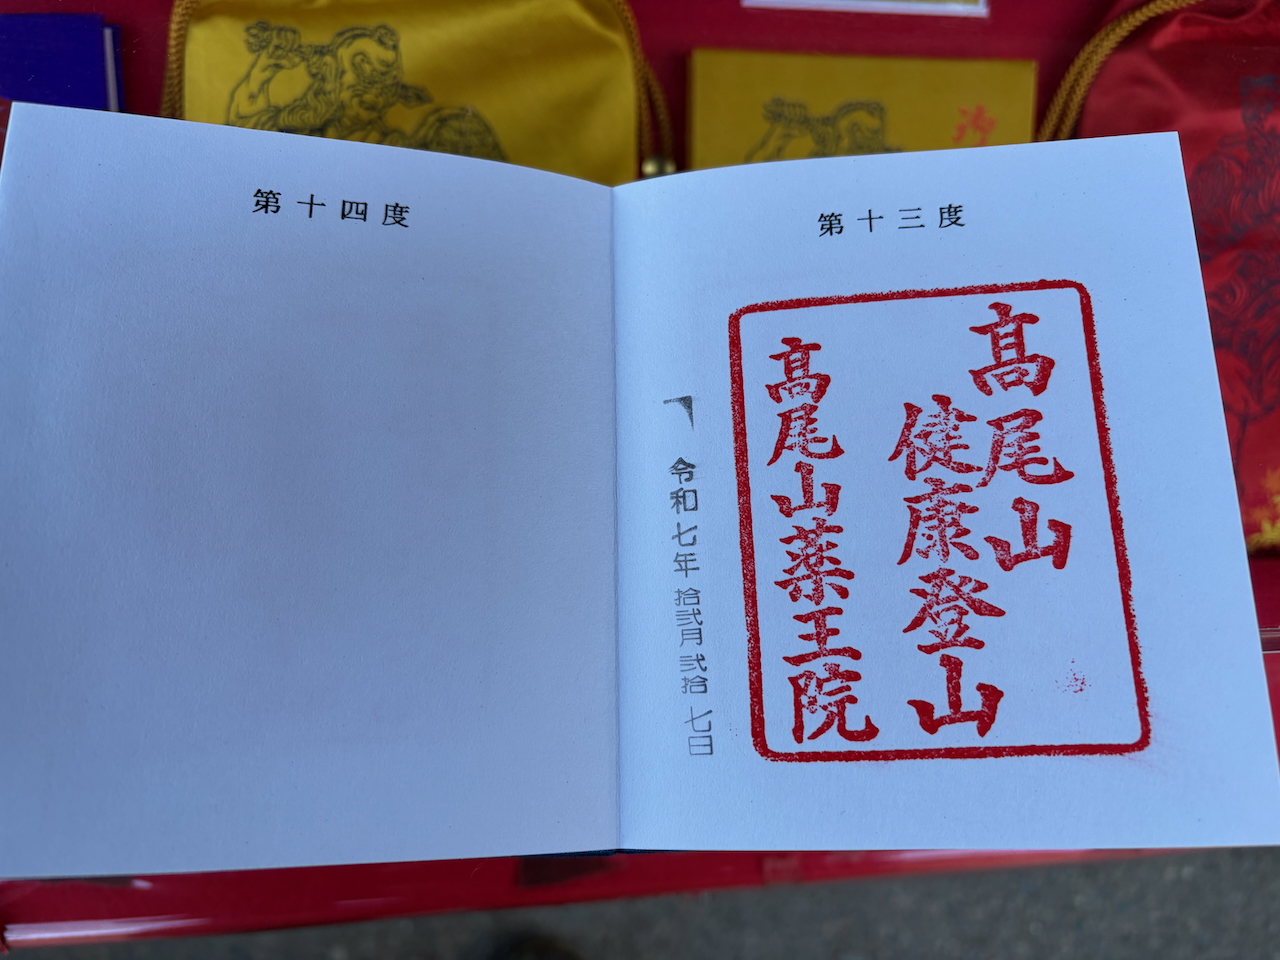 第十三度
髙尾山
健康登山
髙尾山薬王院
令和七年拾弐月弐拾七日
第十四度
御